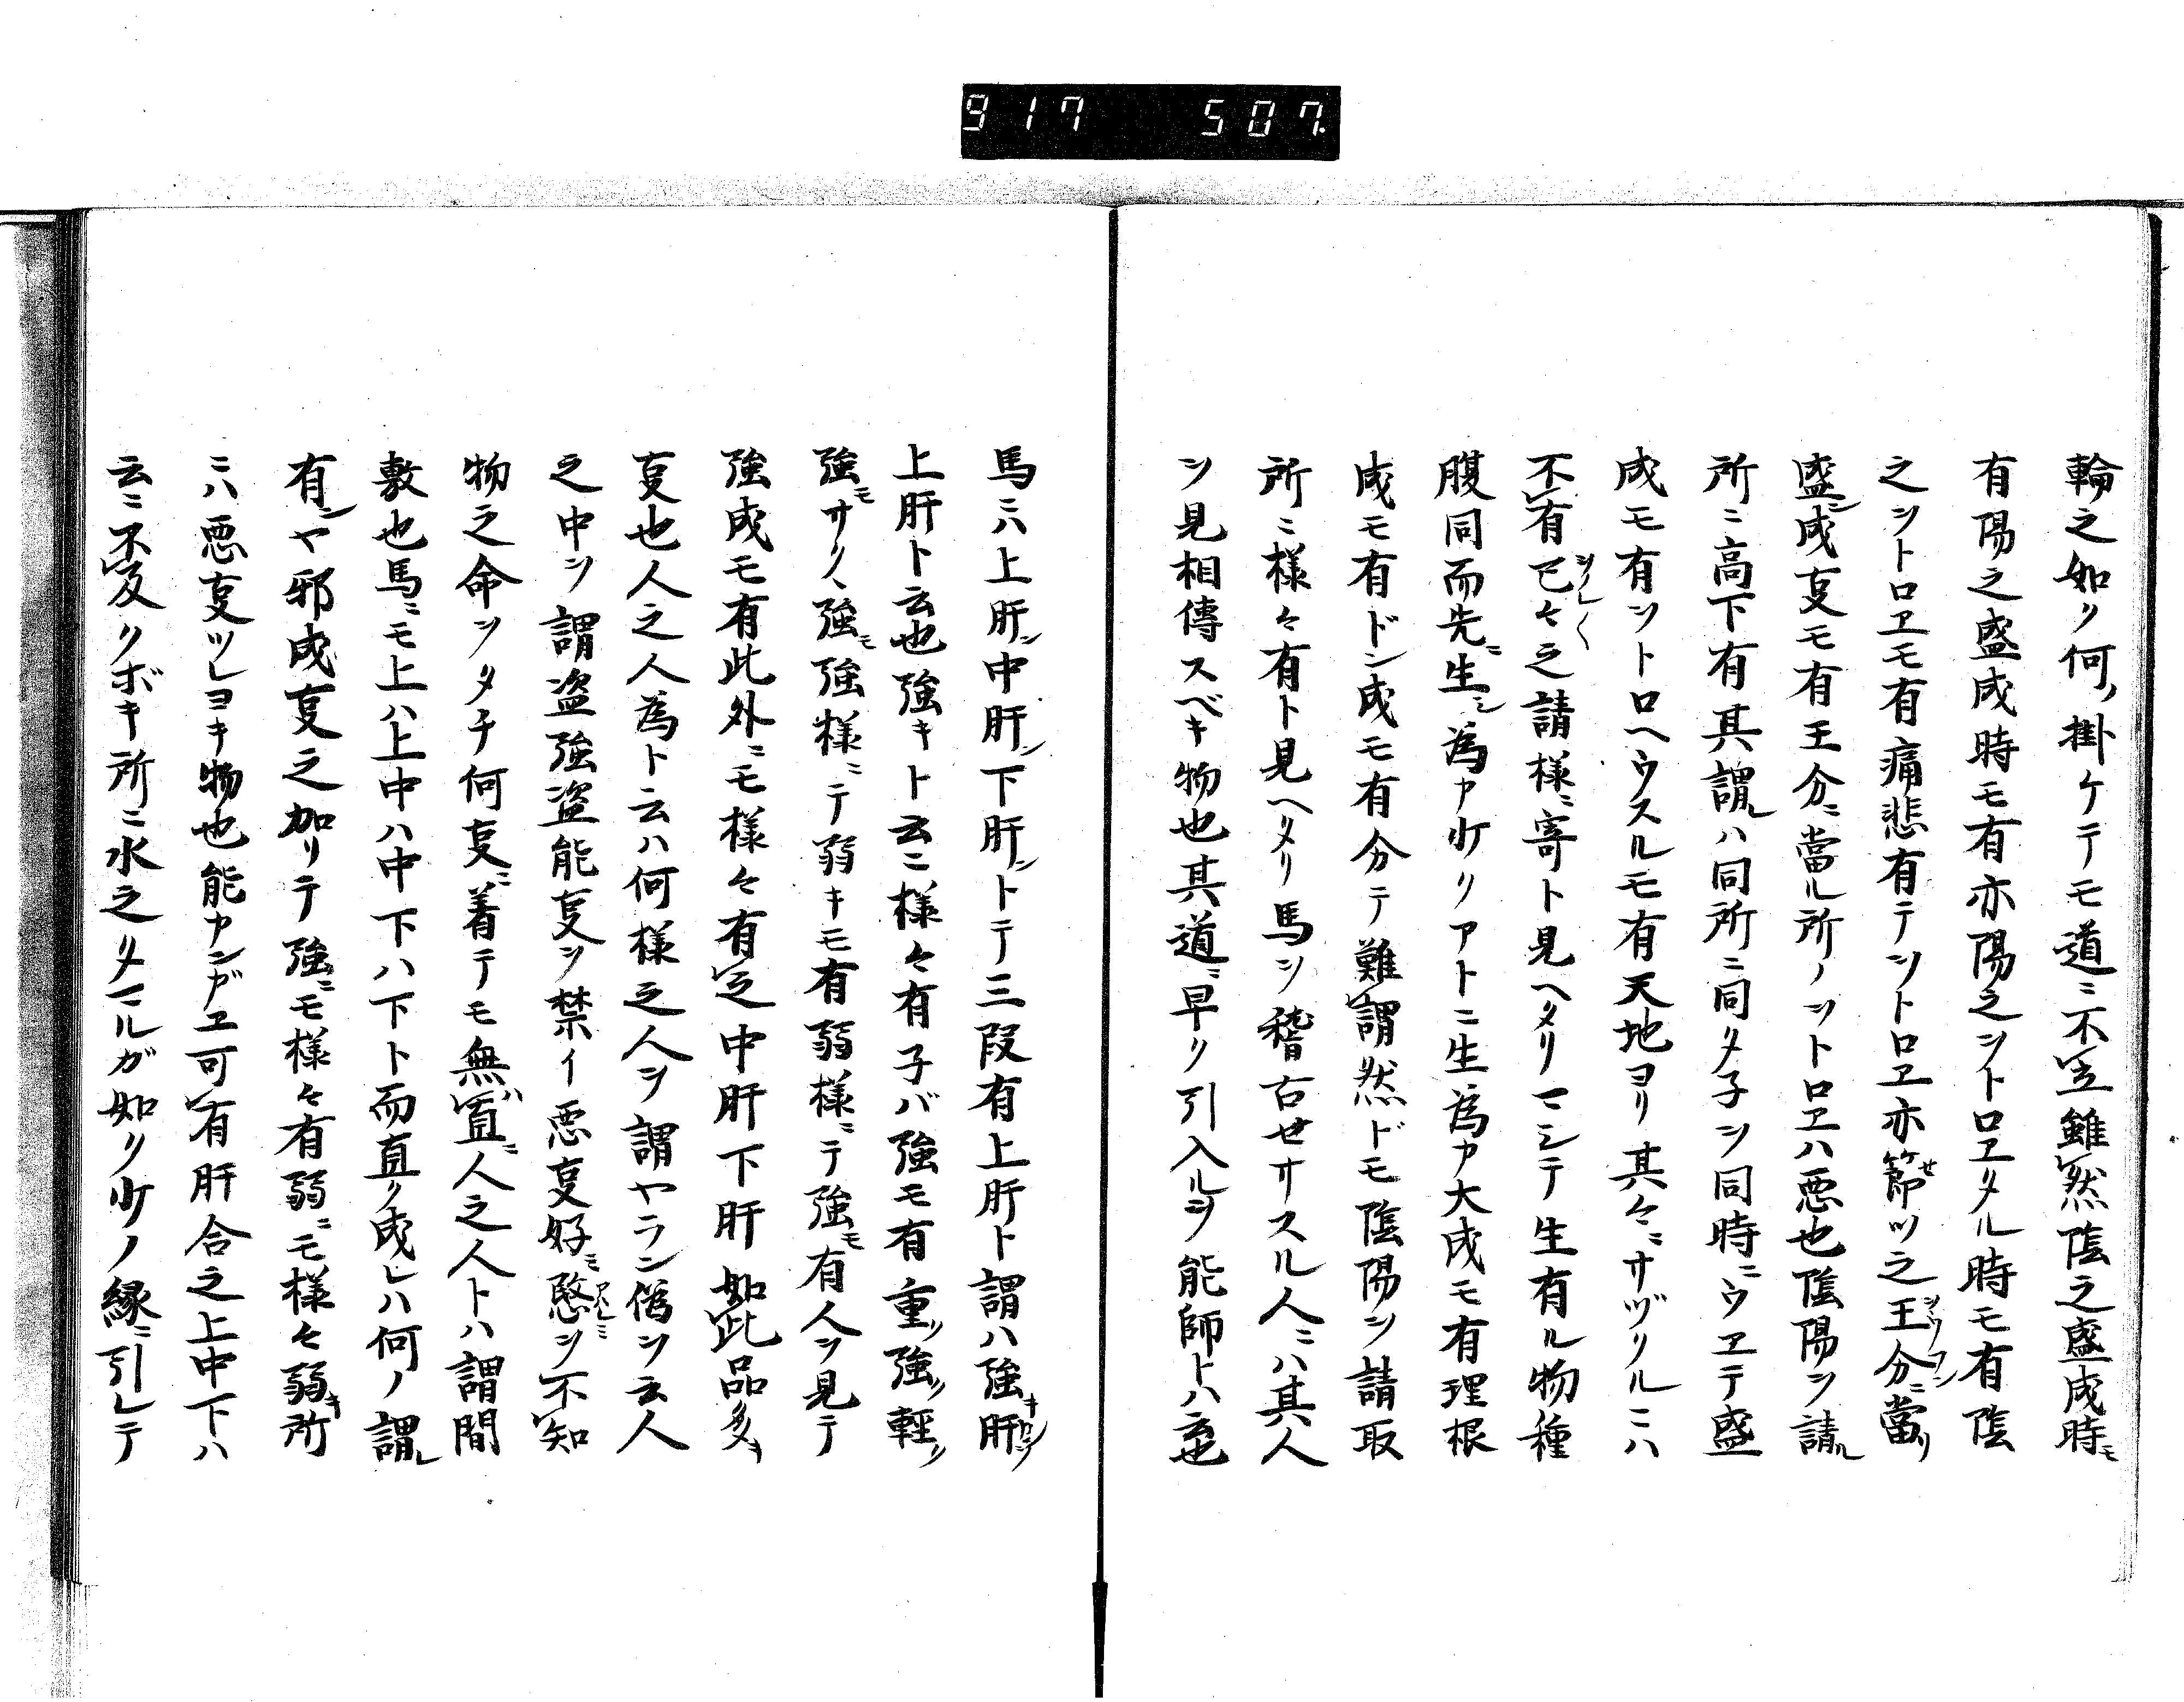 917 507.
輪之如ク何ノ掛ケテモ道ニ不立雖然陰之盛成時モ
有陽之盛成時モ有亦陽之ヲトロヱタル時モ有陰
之ヲトロヱモ有痛悲有テヲトロヱ亦節ツ之王分ニ當リ
盛ニ成㕝モ有王分ニ當ル所ノヲトロヱハ悪也陰陽ヲ請ル
所ニ高下有其謂レハ同所ニ同タ子ヲ同時ニウヱテ盛
成モ有ヲトロヘウスルモ有天地ヨリ其々ニサヅクルニハ
不有已々之請様ニ寄ト見ヘタリマシテ生有ル物種
腹同而先ニ生ヲ為ァ少クアトニ生為ァ大成モ有理根
成モ有ドン成モ有分テ難謂然ドモ陰陽ヲ請取
所ニ様々有ト見ヘタリ馬ヲ稽古セサスル人ニハ其人
ヲ見相傳スベキ物也其道ニ早ク引入ルヲ能師トハ云也
馬ニハ上肝ン中肝ン下肝ントテ三段有上肝ト謂ハ強キ肝ヲ
上肝ト云也強キト云ニ様々有子バ強モ有重ク強ク軽ク
強モサク、強モ強様ニテ弱キモ有弱様ニテ強モ有人ヲ見テ
強成モ有此外ニモ様々有之中肝下肝如此品多キ
㕝也人之人為ト云ハ何様之人ヲ謂ヤラン僧ヲ云人
之中ヲ謂盗強盗能㕝ヲ禁イ悪㕝好ミ愍ヲ不知
物之命ヲタチ何㕝ニ着テモ無直ニハ人之人トハ謂間
敷也馬ニモ上ハ上中ハ中下ハ下ト而直ク成レハ何ノ謂レ
有ンヤ邪成㕝之加リテ強ニモ様々有弱ニモ様々弱キ所
ニハ悪㕝ツレヨキ物也能カンガヱ可有肝合之上中下ハ
云ニ不及クボキ所ニ水之タマルガ如ク少ノ縁ニ引レテ